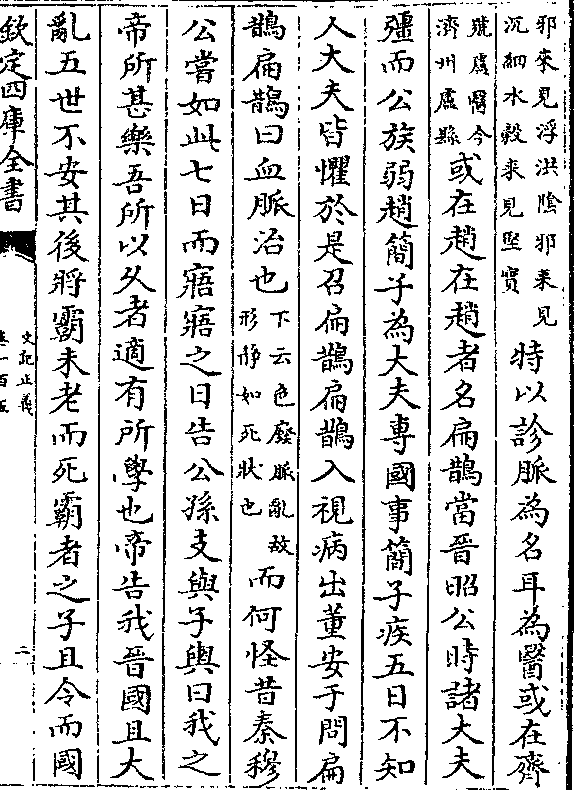 邪來見浮洪陰邪來見
沉細水穀來見堅實
特以診脈為名耳為醫或在齊
號盧醫今
濟州盧縣
或在趙在趙者名扁鵲當晉昭公時諸大夫
彊而公族弱趙簡子為大夫專國事簡子疾五日不知
人大夫皆懼於是召扁鵲扁鵲入視病出董安于問扁
鵲扁鵲曰血脈治也
下云色廢脈亂故
形静如死狀也
而何怪昔秦穆
公嘗如此七日而寤寤之日告公孫支與子輿曰我之
帝所甚樂吾所以久者適有所學也帝告我晉國且大
亂五世不安其後將霸未老而死霸者之子且令而國
欽定四庫全書
史記正義
卷一百五
二